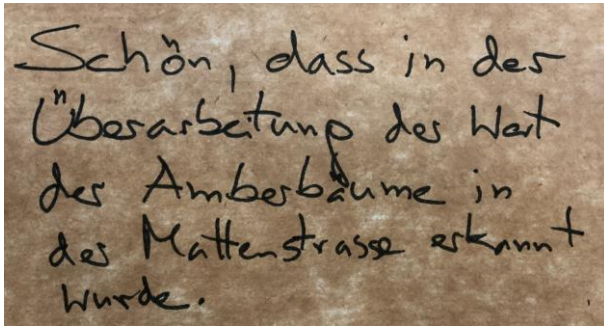 Schön, dass in der
Überarbeitung der Wert
der Amberbäume in
der Mattenstrasse erkannt
wurde.